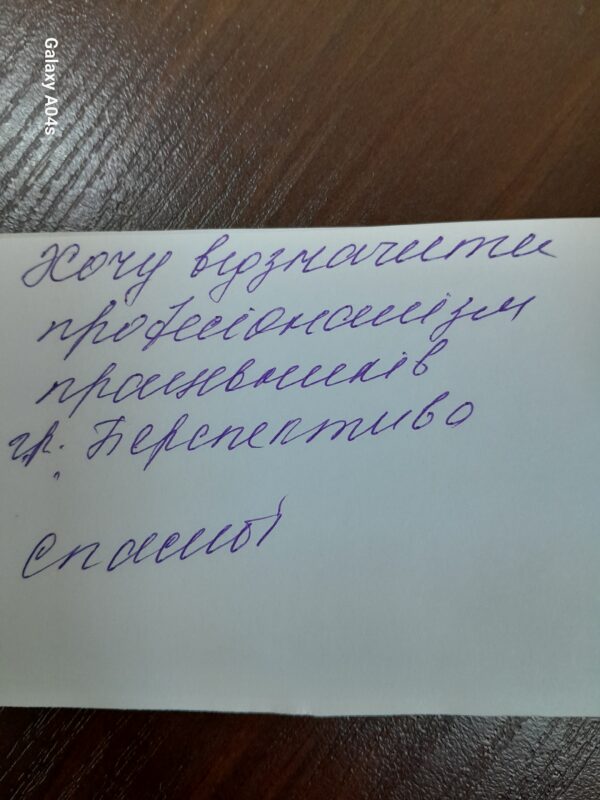 Galaxy A04s
Хочу відзначити
професіоналізм
працівників
гр. Перспектива
Спасибі